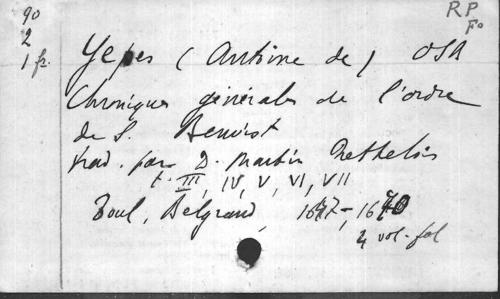 90
2
1 fr.
RP
Fo
Yepes (Antoine de) OSA
Chroniques générales de l'ordre
de S. Benoist
trad. par D. Martin Rethelois
t. III, IV, V, VI, VII
Toul, Belgrand, 1647-, 1670
4 vol. fol